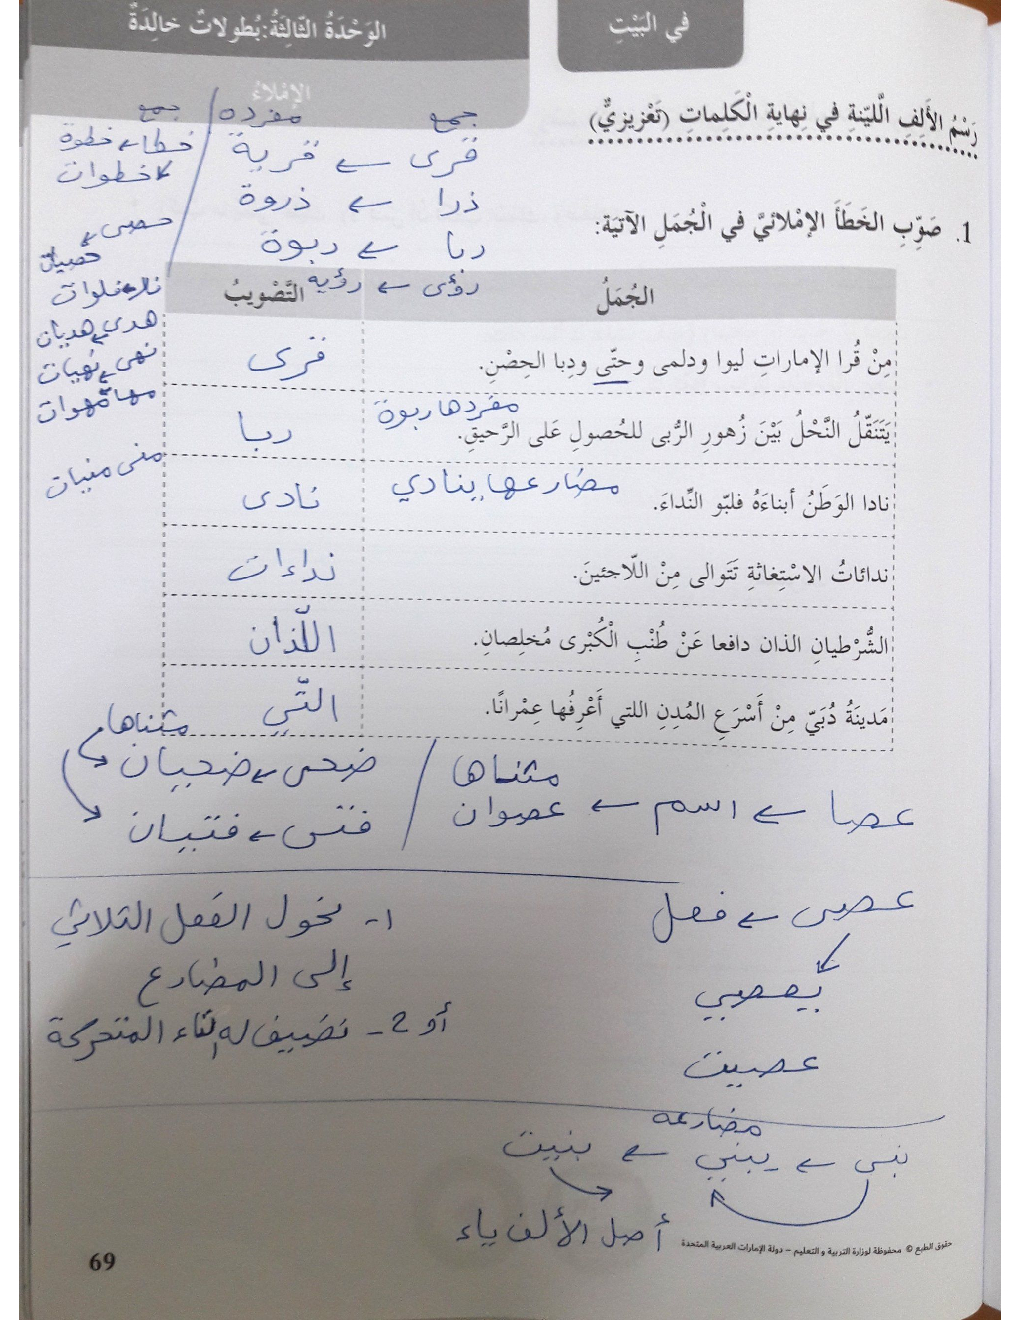 في البَيْتِ
الوَحْدَةُ الثّالِثَةُ: بُطولاتٌ خالِدَةٌ
الإمْلاءُ
رَسْمُ الأَلِفِ اللَّيّنةِ في نِهايةِ الْكَلِماتِ (تَعْزيزيٌّ)
جمع / مفرده
قرى ← قرية
ذرا ← ذروة
ربا ← ربوة
رؤى ← رؤية
جمع
خطا ← خطوة
خطوات
حصى ←
حصيات
فلوات
هدى ← هديان
نهى ← نهيات
مها ← مهوات
منى منيات
1. صَوِّبِ الخَطَأَ الإمْلائيَّ في الْجُمَلِ الآتيَة:
الجُمَلُ
التَّصْويبُ
مِنْ قُرا الإماراتِ ليوا ودلمى وحتّى ودِبا الحِصْنِ.
قرى
مفردها ربوة
يَتَنَقّلُ النَّحْلُ بَيْنَ زُهورِ الرُّبى للحُصولِ عَلى الرَّحيقِ.
ربا
مضارعها ينادي
نادا الوَطَنُ أبناءَهُ فلبّو النِّداءَ.
نادى
ندائاتُ الاسْتِغاثةِ تَتَوالى مِنْ اللّاجئينَ.
نداءات
الشُّرْطيانِ الذان دافعا عَنْ طُنْبِ الْكُبْرى مُخلِصانِ.
اللّذان
مَدينَةُ دُبَيّ مِنْ أَسْرَعِ المُدِنِ اللتي أَعْرِفُها عِمْرانًا.
الّتي
عصا ← اسم ← مثناها عصوان
مثناها
ضحى ← ضحيان
فتى ← فتيان
عصى ← فعل
يعصي
عصيت
1- نحول الفعل الثلاثي
إلى المضارع
أو 2- نضيف له التاء المتحركة
مضارعه
بنى ← يبني ← بنيت
أصل الألف ياء
حقوق الطبع © محفوظة لوزارة التربية و التعليم – دولة الإمارات العربية المتحدة
69